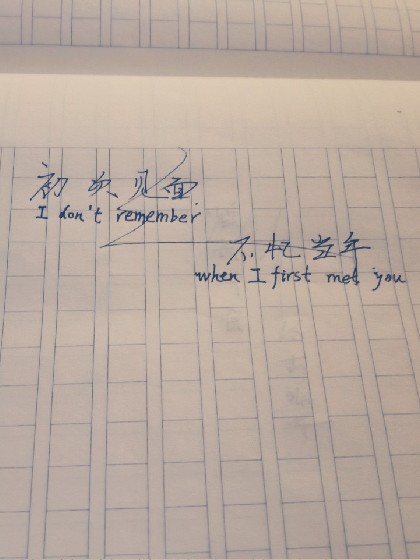 初次见面
I don't remember
不忆当年
when I first met you